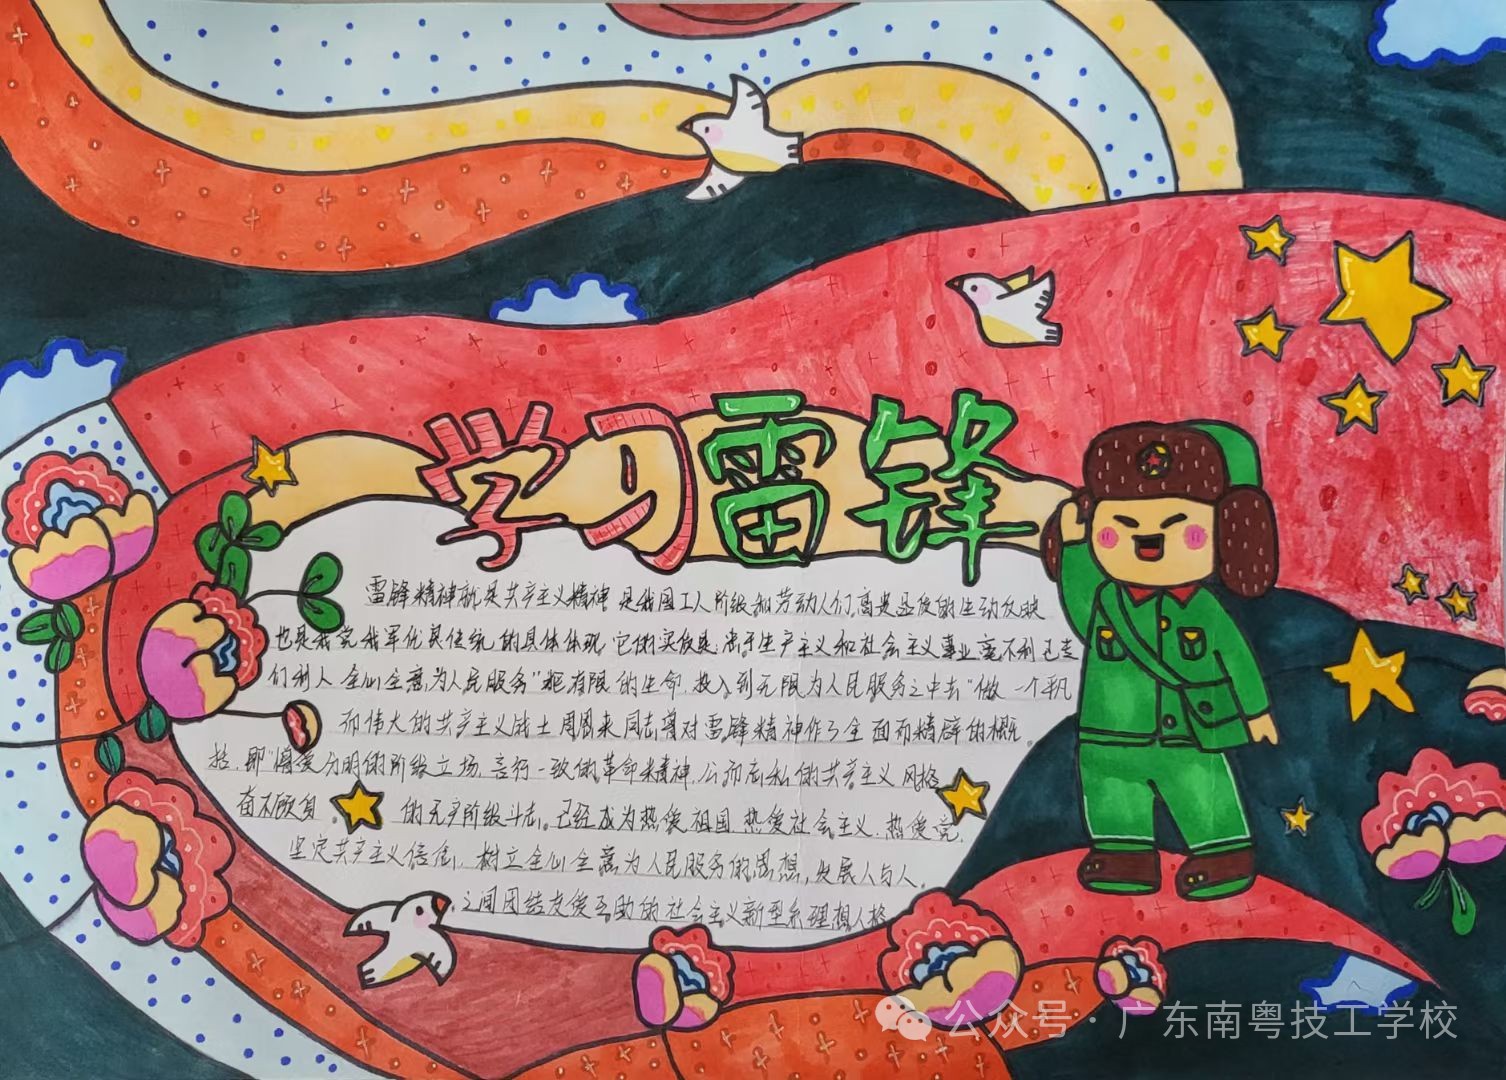 学习雷锋
雷锋精神就是共产主义精神 是我国工人阶级和劳动人们,高贵品质的生动反映
也是我党我军优良传统的具体体现,它的实质是:忠于生产主义和社会主义事业,毫不利己专
们利人 全心全意,为人民服务"把有限的生命,投入到无限为人民服务之中去"做一个平凡
而伟大的共产主义战士 周恩来同志曾对雷锋精神作了全面而精辟的概
括.即"憎爱分明的阶级立场,言行一致的革命精神,公而忘私的共产主义风格
奋不顾身 的无产阶级斗志。已经成为热爱祖国,热爱社会主义,热爱党,
坚定共产主义信念,树立全心全意为人民服务的思想,发展人与人
之间团结友爱互助的社会主义新型 理想人格
公众号·广东南粤技工学校